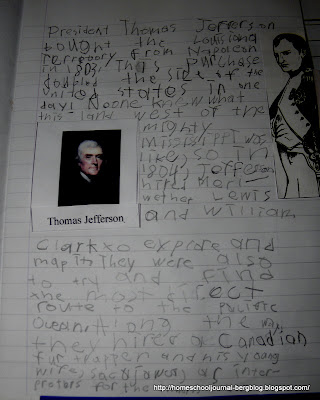 President Thomas Jefferson
bought the Louisiana
terretory from Napoleon
in 1803. This purchase
doubled the size of the
United states in one
day! No one knew what
this land west of the
mighty
Mississippi was
like, so in
1804, Jefferson
hired Meri-
wether Lewis
and William
Thomas Jefferson
Clark to explore and
map it. They were also
to try and find
the most direct
route to the
Ocean. Along the way
they hired a Canadian
fur trapper and his young
wife, as inter-
pretors for the
http://homeschooljournal-bergblog.blogspot.com